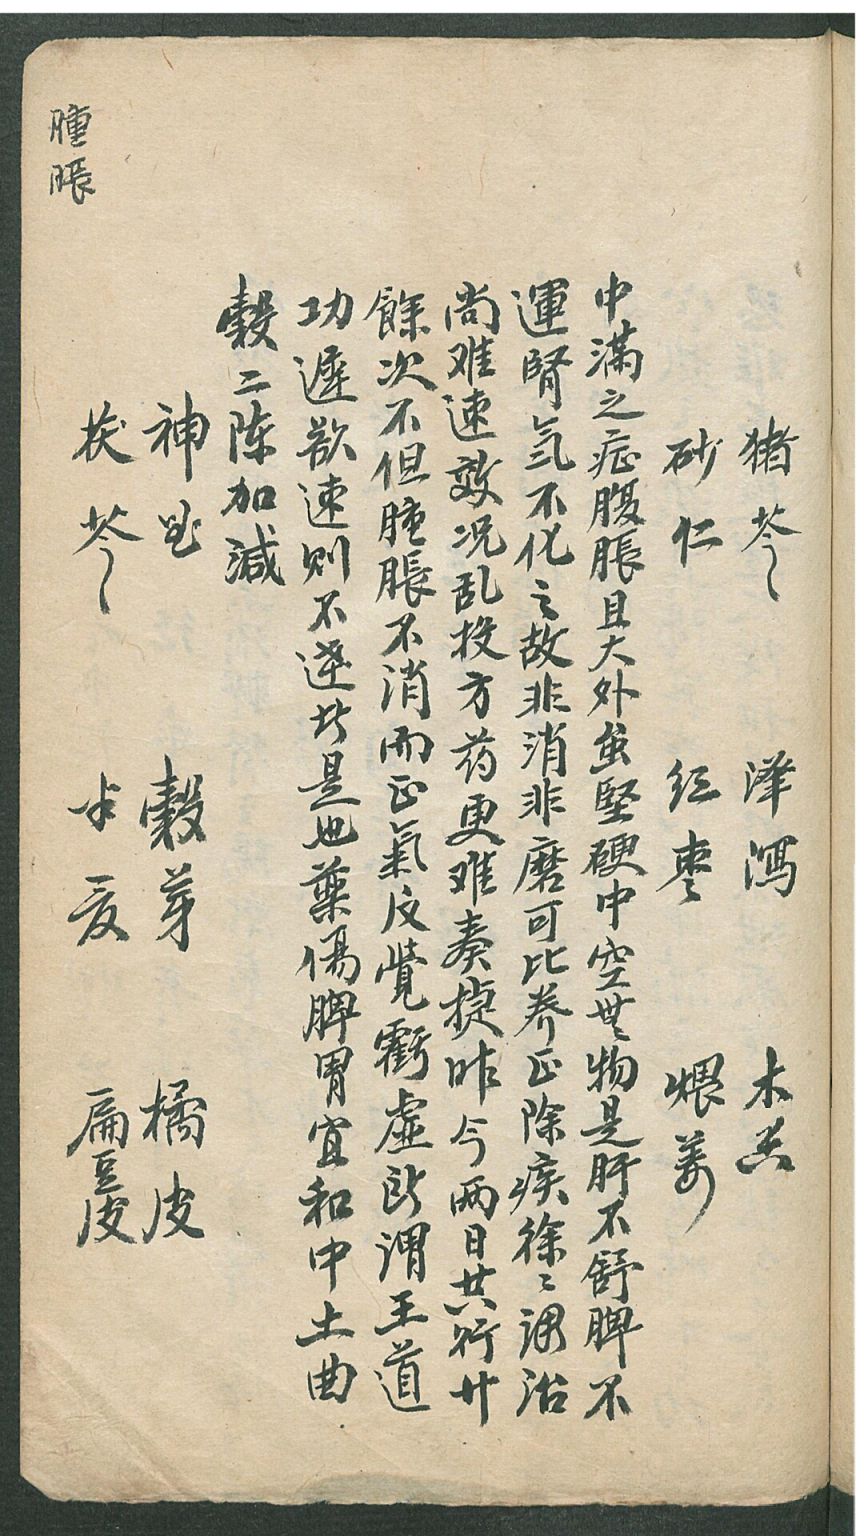 腫脹
猪苓 泽瀉 木香
砂仁 红枣 煨姜
中滿之症腹脹且大外虽堅硬中空無物是肝不舒脾不
運腎氣不化之故非消非磨可比养正除疾徐〻調治
尚难速效况乱投方药更难奏捷昨今兩日共行廿
餘次不但腫脹不消而正氣反覺虧虛所謂王道
功遲欲速则不達此是也藥傷脾胃宜和中土曲
穀二陈加減
神曲 穀芽 橘皮
茯苓 半夏 扁豆皮